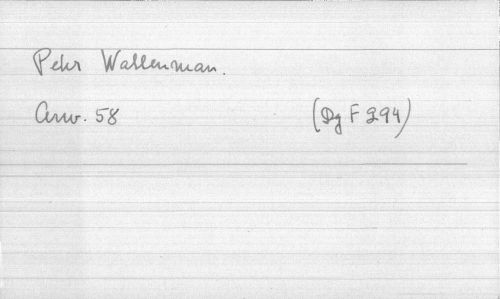 Pehr Wallenman.
Anv. 58 (Dg F 294)